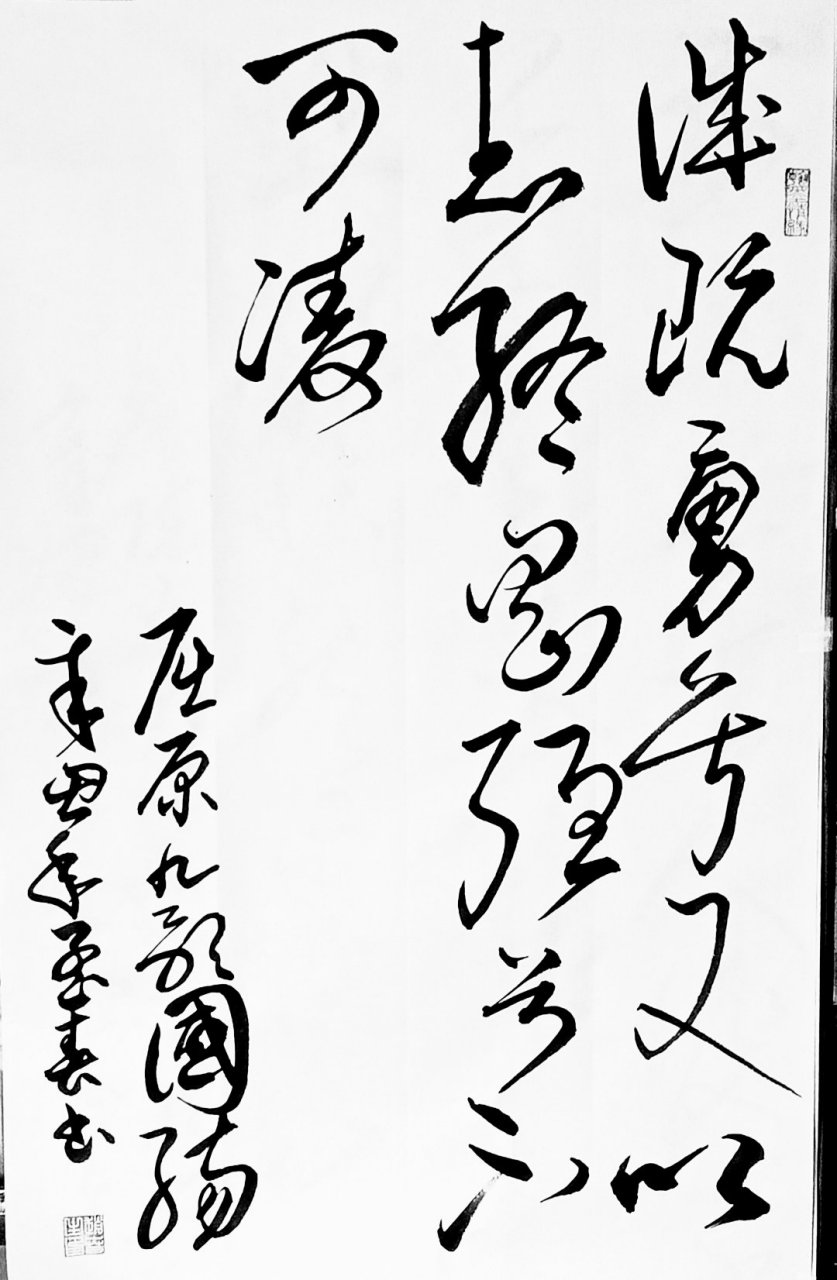 诚既勇兮又以
武终刚强兮不
可凌
屈原九歌國殇
辛丑年孟春书